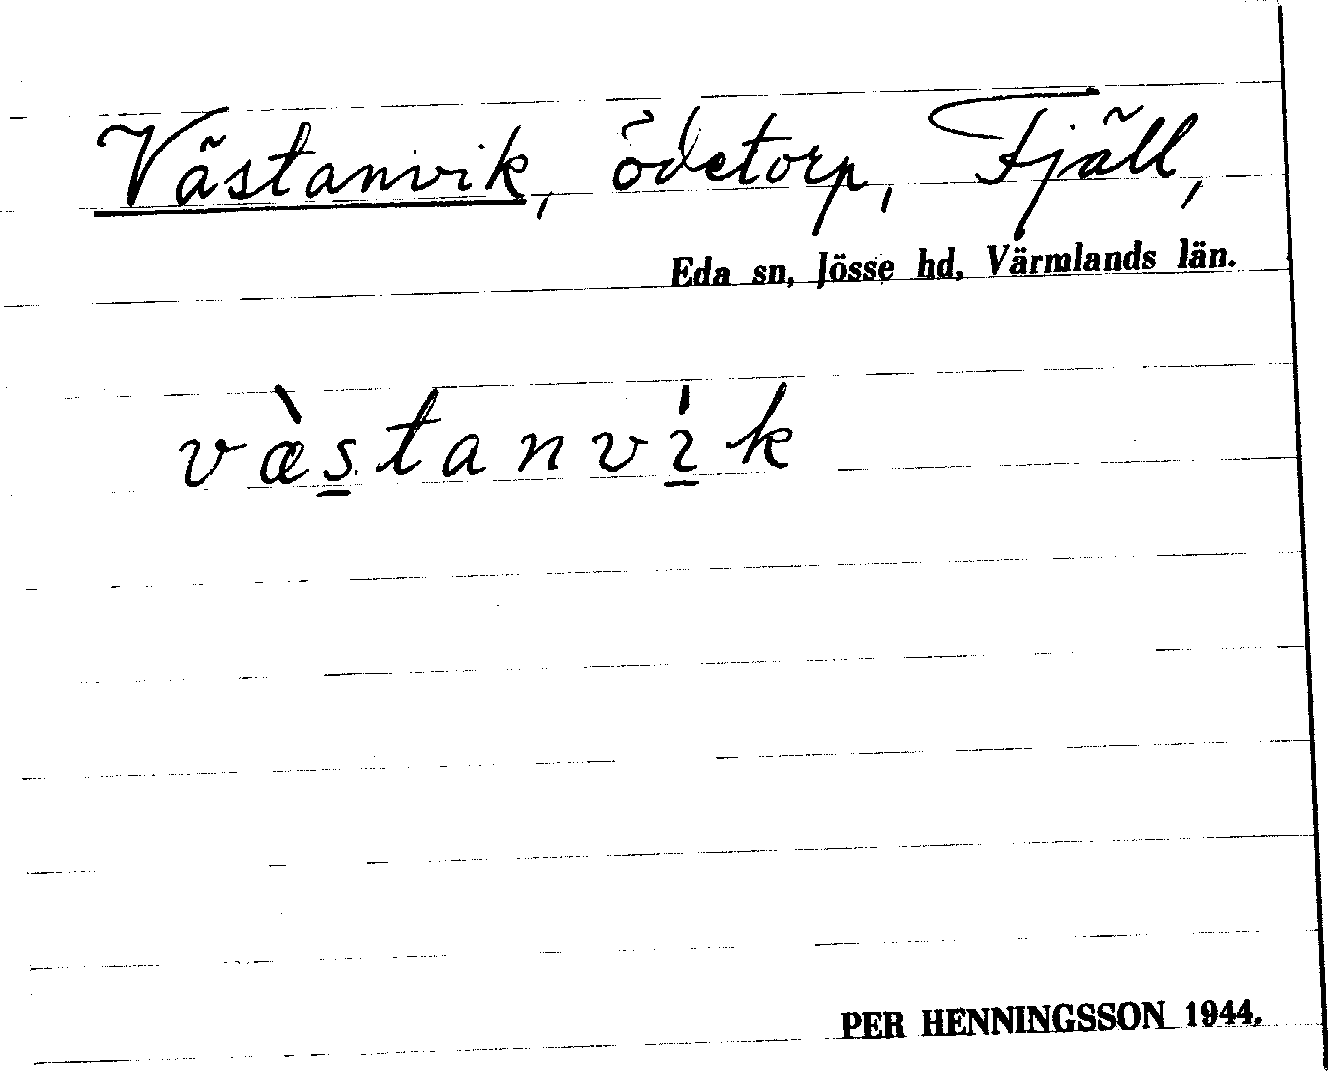 Västanvik, ödetorp, Fjäll,
Eda sn, Jösse hd, Värmlands län.
væ̀s̲tanvı̲́k
PER HENNINGSSON 1944.